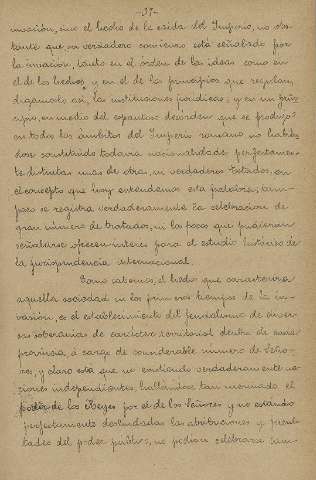 -37-
invasión, sino el hecho de la caida del Imperio, no obs-
tante que su verdadero comienzo está señalado por
la invasión, tanto en el orden de las ideas como en
el de los hechos, y en el de los principios que regulan,
digamoslo asi, las instituciones juridicas; y en un prin-
cipio, en medio del espantoso desorden que se produjo
en todos los ámbitos del Imperio romano no habien-
dose constituido todavia nacionalidades perfectamen-
te distintas unas de otras, ni verdaderos Estados, en
el concepto que hoy entendemos esta palabra, tam-
poco se registra verdaderamente la celebracion de
gran número de tratados, ni los pocos que pudieran
señalarse ofrecen interes para el estudio historico de
la jurisprudencia internacional.
Como sabemos, el hecho que caracteriza
aquella sociedad en los primeros tiempos de la in-
vasión, es el establecimiento del feudalismo de diver-
sas soberanias de carácter territorial dentro de cada
provincia, á cargo de considerable numero de Seño-
res, y claro está que no existiendo verdaderamente na-
ciones independientes, hallándose tan mermado el
poder de los Reyes por el de los Señores y no estando
perfectamente deslindadas las atribuciones y facul-
tades del poder público, no podian celebrarse tam-